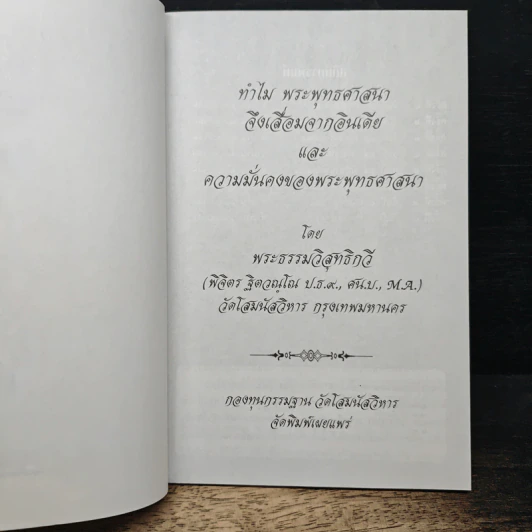 ทำไม พระพุทธศาสนา
จึงเสื่อมจากอินเดีย
และ
ความมั่นคงของพระพุทธศาสนา
โดย
พระธรรมวิสุทธิกวี
(พิจิตร ฐิตวณฺโณ ป.ธ.๙., ศน.บ., M.A.)
วัดโสมนัสวิหาร กรุงเทพมหานคร
กองทุนกรรมฐาน วัดโสมนัสวิหาร
จัดพิมพ์เผยแพร่